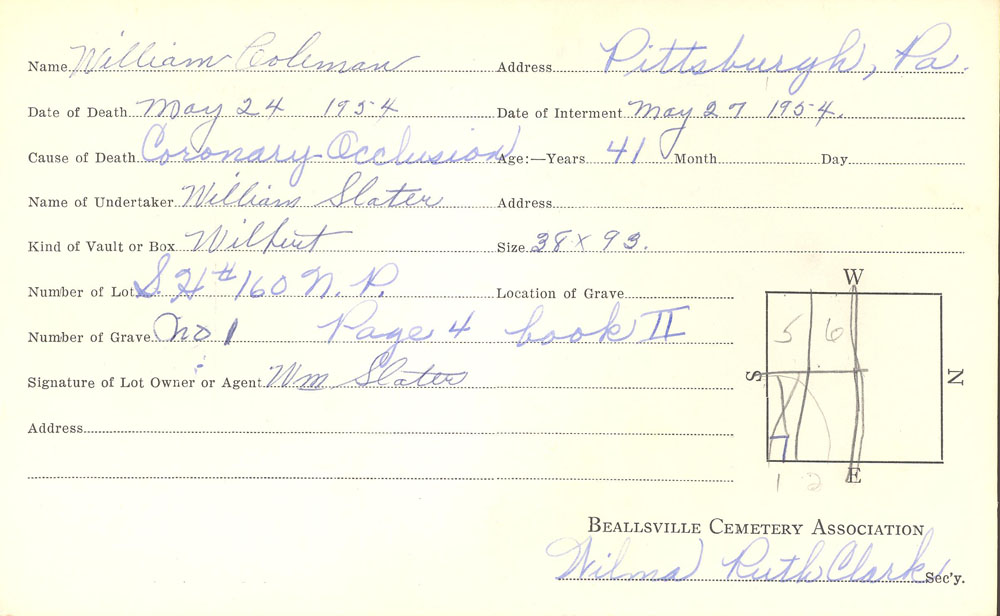 Name William Coleman Address Pittsburgh, Pa.
Date of Death May 24 1954 Date of Interment May 27 1954.
Cause of Death Coronary Occlusion Age:—Years 41 Month Day
Name of Undertaker William Slater Address
Kind of Vault or Box Wilbert Size 38 x 93.
Number of Lot S. H # 160 N. P. Location of Grave
Number of Grave No 1 Page 4 book II
Signature of Lot Owner or Agent Wm Slater
Address
W
5 6
S N
1 2 E
BEALLSVILLE CEMETERY ASSOCIATION
Wilma Ruth Clark Sec'y.